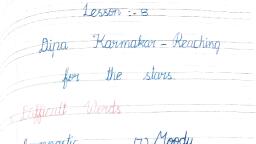 Lesson :- 8
Dipa Karmakar - Reaching
for the stars
Difficult Words
(7) Moody